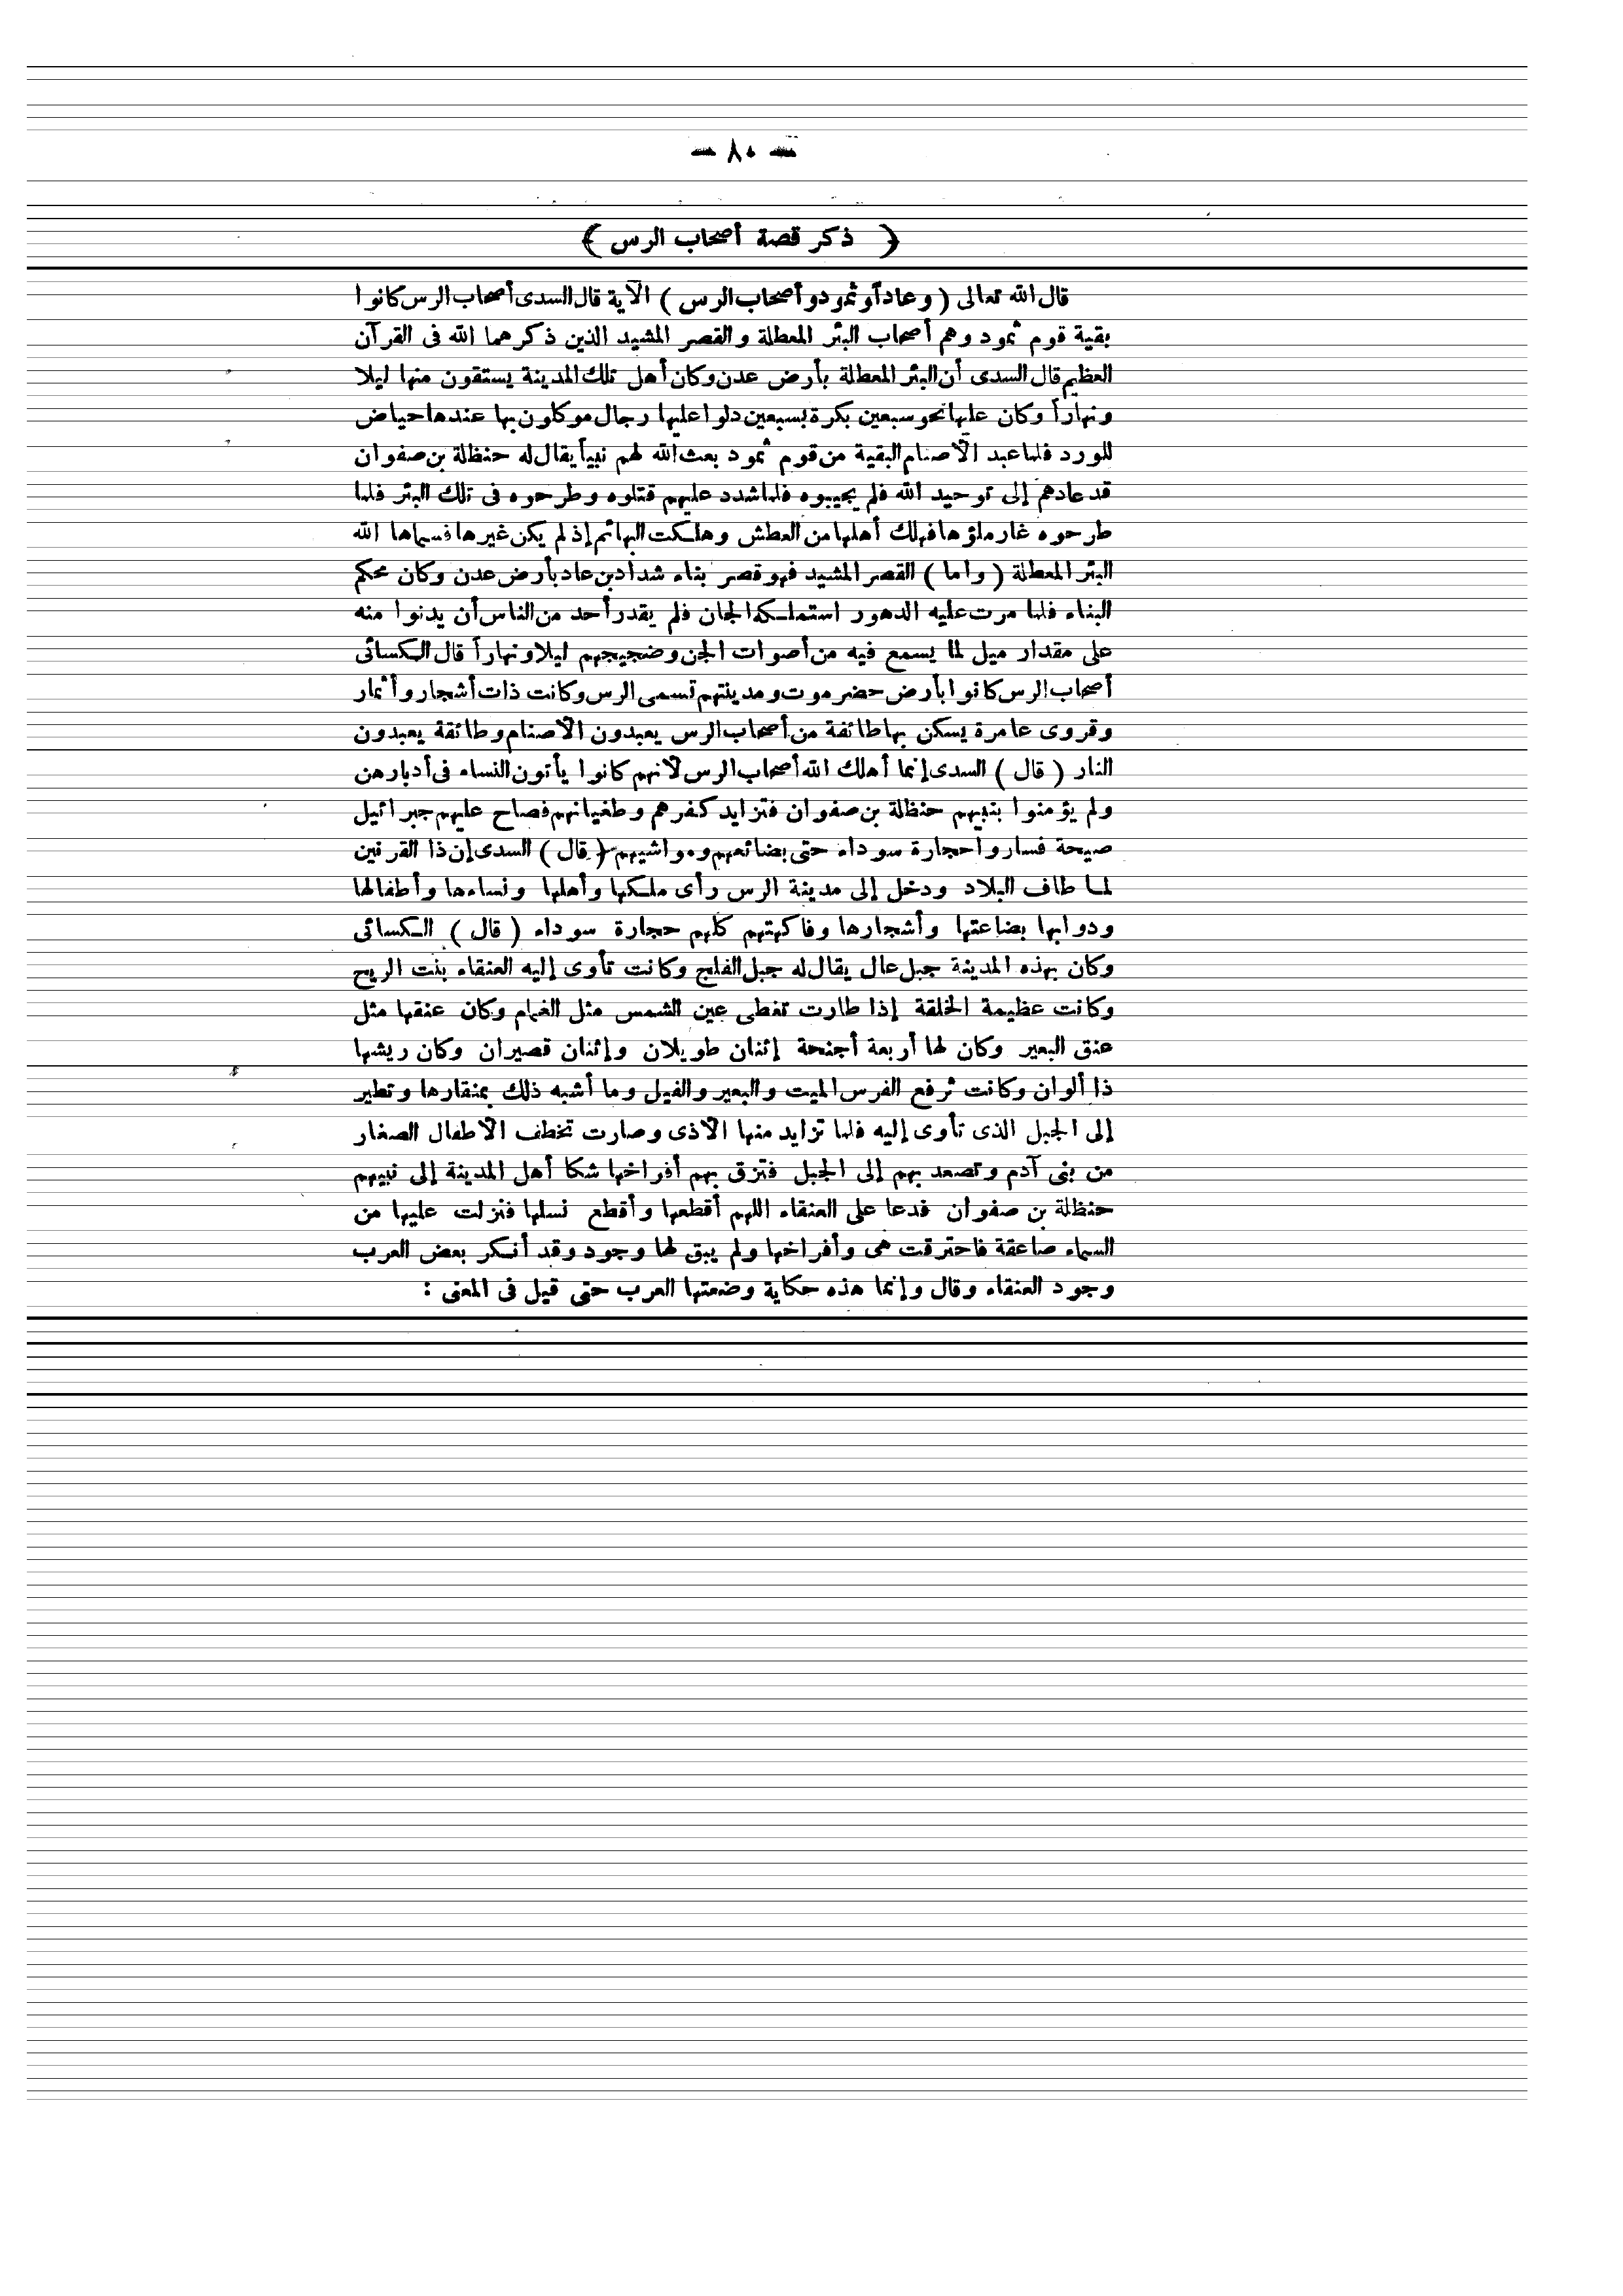 — ٨٠ —
( ذكر قصة أصحاب الرس )
قال الله تعالى ( وعاداً وثمود وأصحاب الرس ) الآية قال السدى أصحاب الرس كانوا
بقية قوم ثمود وهم أصحاب البئر المعطلة والقصر المشيد الذين ذكرهما الله فى القرآن
العظيم قال السدى أن البئر المعطلة بأرض عدن وكان أهل تلك المدينة يستقون منها ليلا
ونهاراً وكان عليها نحو سبعين بكرة بسبعين دلوا عليها رجال موكلون بها عندها حياض
للورد فلما عبد الأصنام البقية من قوم ثمود بعث الله لهم نبياً يقال له حنظلة بن صفوان
قد عادهم إلى توحيد الله فلم يجيبوه فلما شدد عليهم قتلوه وطرحوه فى تلك البئر فلما
طرحوه غار ملؤها فهلك أهلها من العطش وهلكت البهائم إذ لم يكن غيرها فسماها الله
البئر المعطلة ( وأما ) القصر المشيد فهو قصر بناه شداد بن عاد بأرض عدن وكان محكم
البناء فلما مرت عليه الدهور استملكه الجان فلم يقدر أحد من الناس أن يدنوا منه
على مقدار ميل لما يسمع فيه من أصوات الجن وضجيجهم ليلا ونهاراً قال الكسائى
أصحاب الرس كانوا بأرض حضر موت ومدينتهم تسمى الرس وكانت ذات أشجار وأثمار
وقروى عامرة يسكن بها طائفة من أصحاب الرس يعبدون الأصنام وطائفة يعبدون
النار ( قال ) السدى إنما أهلك الله أصحاب الرس لأنهم كانوا يأتون النساء فى أدبارهن
ولم يؤمنوا بنبيهم حنظلة بن صفوان فتزايد كفرهم وطغيانهم فصاح عليهم جبرائيل
صيحة فساروا حجارة سوداء حتى بضائعهم ومواشيهم ( قال ) السدى إن ذا القرنين
لما طاف البلاد ودخل إلى مدينة الرس رأى ملكها وأهلها ونساءها وأطفالها
ودوابها بضاعتها وأشجارها وفاكهتهم كلهم حجارة سوداء ( قال ) الكسائى
وكان بهذه المدينة جبل عال يقال له جبل الفلج وكانت تأوى إليه العنقاء بنت الريح
وكانت عظيمة الخلقة إذا طارت تغطى عين الشمس مثل الغمام وكان عنقها مثل
عنق البعير وكان لها أربعة أجنحة إثنان طويلان وإثنان قصيران وكان ريشها
ذا ألوان وكانت ترفع الفرس الميت والبعير والفيل وما أشبه ذلك بمنقارها وتطير
إلى الجبل الذى تأوى إليه فلما تزايد منها الأذى وصارت تخطف الأطفال الصغار
من بنى آدم وتصعد بهم إلى الجبل فتزق بهم أفراخها شكا أهل المدينة إلى نبيهم
حنظلة بن صفوان فدعا على العنقاء اللهم أقطعها وأقطع نسلها فنزلت عليها من
السماء صاعقة فاحترقت هى وأفراخها ولم يبق لها وجود وقد أنكر بعض العرب
وجود العنقاء وقال وإنما هذه حكاية وضعتها العرب حتى قيل فى المعنى :